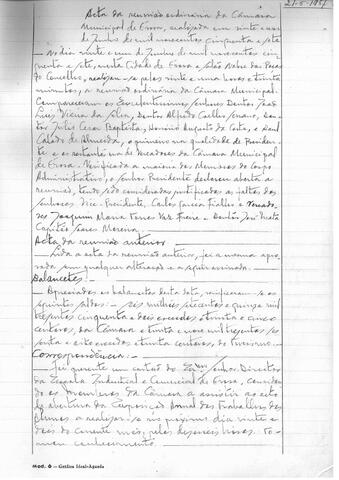 21-6-1957
Acta da reunião ordinária da Câmara
Municipal de Evora, realizada em vinte e um
de Junho de mil novecentos cinquenta e sete
No dia vinte e um de Junho de mil novecentos cinco-
enta e sete, nesta Cidade de Evora e Sala Nobre dos Paços
do Concelho, realizou-se pelas vinte e uma horas e trinta
minutos, a reunião ordinária da Câmara Municipal.
Compareceram os Excelentissimos senhores Doutor José
Luis Vieira da Silva, Doutor Alfredo Coelho
Julio Cesar Baptista, Honório Augusto da Costa, e Raul
de Almeida, o primeiro na qualidade de Presiden-
te e os restantes na de Vereadores da Câmara Municipal
de Evora. Verificada a maioria dos Membros do Corpo
Administrativo, o senhor Presidente declarou aberta a
reunião, tendo sido consideradas justificadas as faltas dos
senhores Vice-Presidente, Carlos Garcia Fialho e Vereado-
res Joaquim Maria Torres Vaz Freire e Doutor José Mata
Capitão Soares Moreira.
Acta da reunião anterior
Lida a acta da reunião anterior, foi a mesma apro-
vada sem qualquer alteração e a seguir assinada.
Balancetes:
Apreciados os balancetes desta data, verificaram-se os
seguintes saldos: seis milhões setecentos e quinze mil
cinquenta e dois escudos e trinta e cinco
centavos, da Câmara e trinta e nove mil trezentos e se-
ssenta e oito escudos e trinta centavos do turismo.
Correspondência:
Foi presente um cartão do Exmo Senhor Director
da Escola Industrial e Comercial de Evora, convidan-
do os membros da Câmara a assistir ao acto
de abertura da Exposição Anual dos Trabalhos dos
Alunos, a realizar-se no próximo dia vinte e
dois do corrente mês, pelas dezasseis horas. To-
mou conhecimento.
Mod. 6 - Gráfica Ideal-Agueda